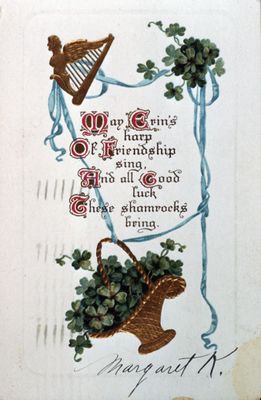 May Erin's
harp
Of Friendship
sing,
And all Good
luck
These shamrocks
bring.
Margaret K.